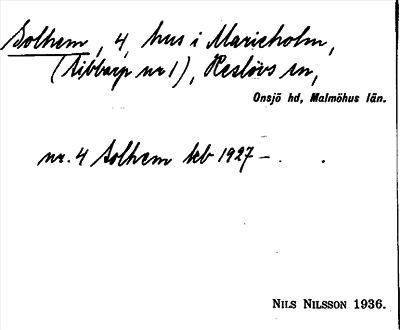 Solhem, 4, hus i Marieholm,
(Ribbarp nr 1), Reslövs sn,
Onsjö hd, Malmöhus län.
nr. 4 Solhem teb 1927 –.
NILS NILSSON 1936.